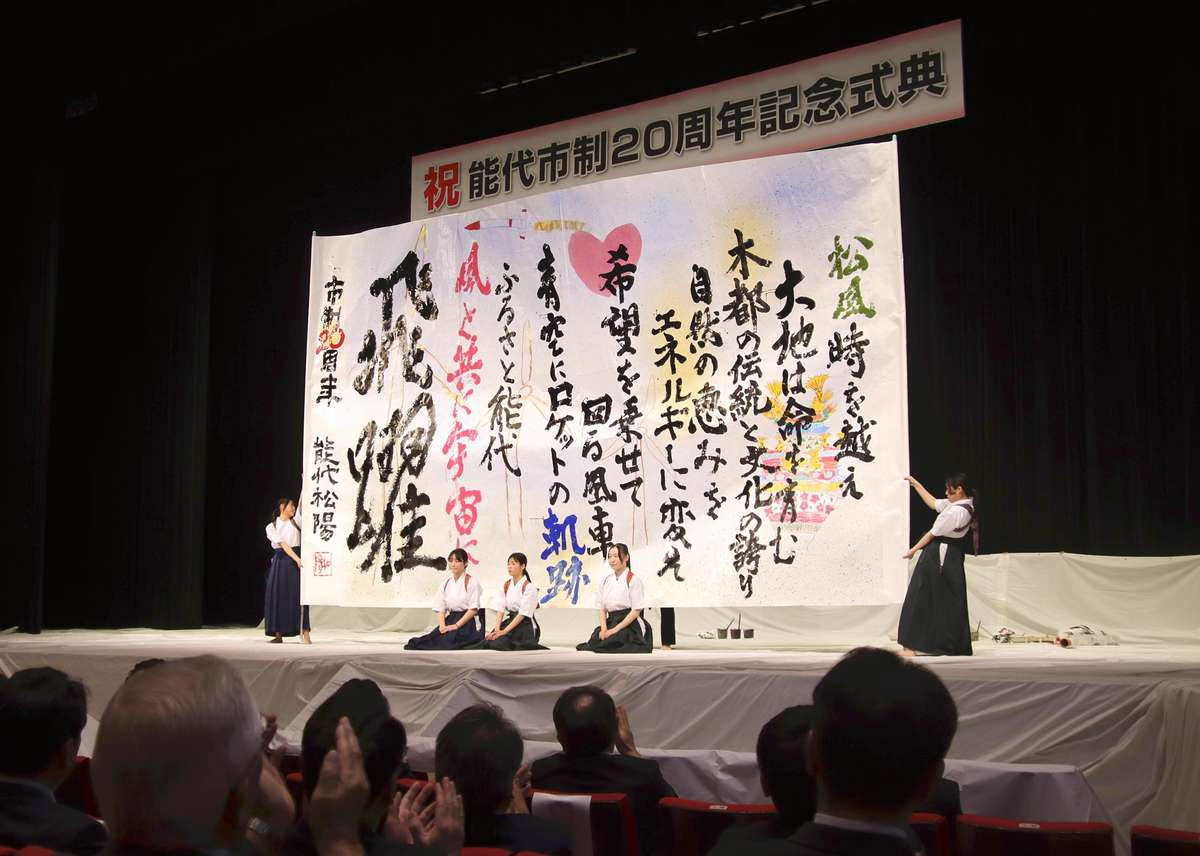 祝 能代市制20周年記念式典
松風時を越え
大地は命を育む
木都の伝統と文化の誇り
自然の恵みを
エネルギーに変え
希望を乗せて
回る風車
青空にロケットの軌跡
ふるさと能代
風と共に宇宙に
飛躍
市制20周年 能代松陽